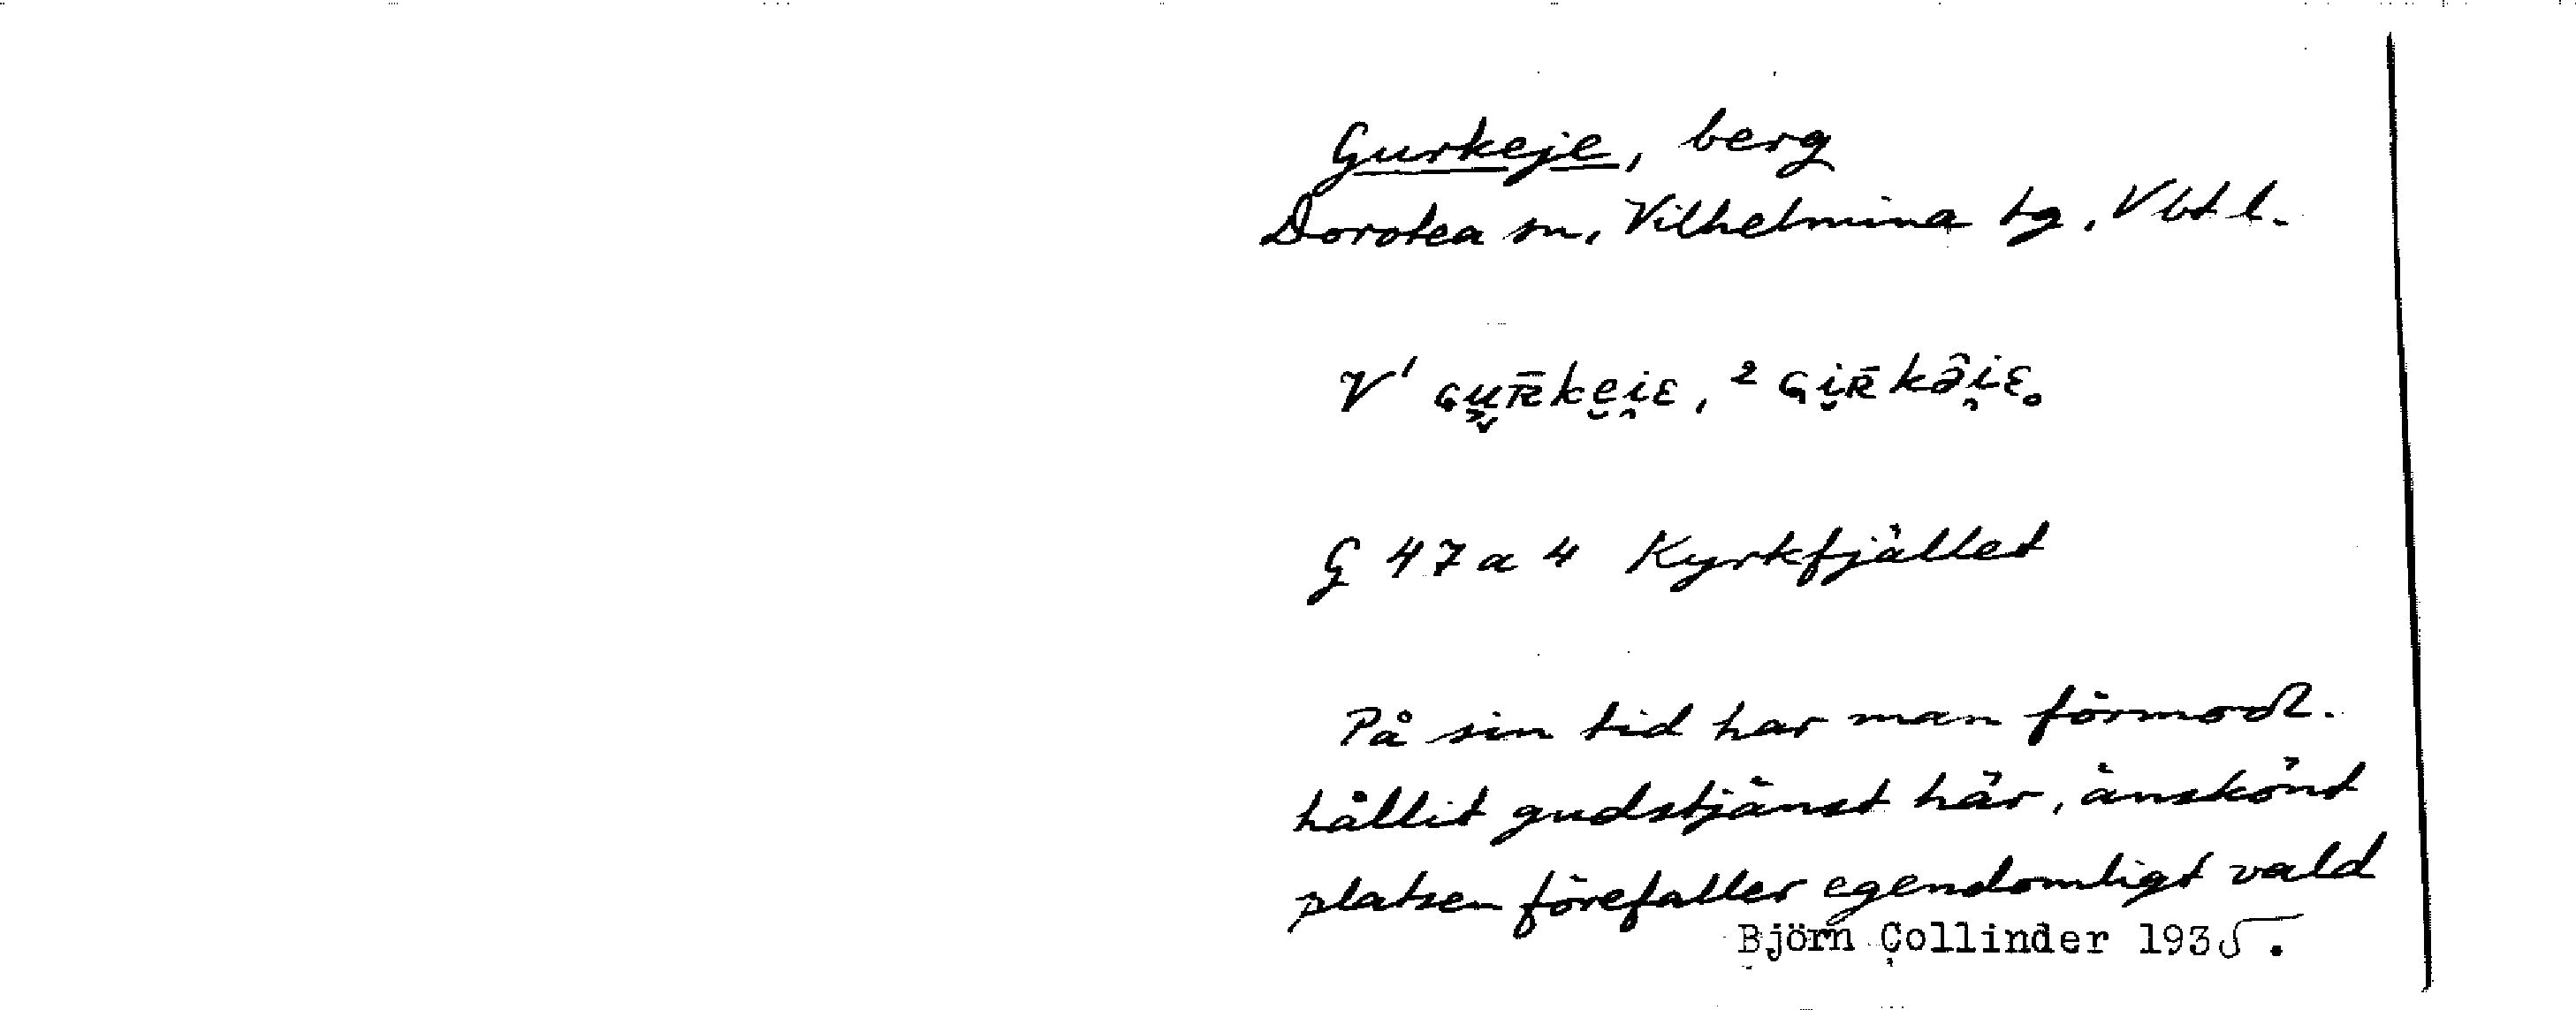 Gurkeje, berg
Dorotea sn, Vilhelmina tg, Vbtl.
V¹ ɢu̯ʀ̄ke̮i̯ɛ, ² ɢi̮ʀ̄kə̂i̯ɛ.
G 47 a 4 Kyrkfjället
På sin tid har man förmodl.
hållit gudstjänst här, änskönt
platsen förefaller egendomligt vald
Björn Collinder 1935.